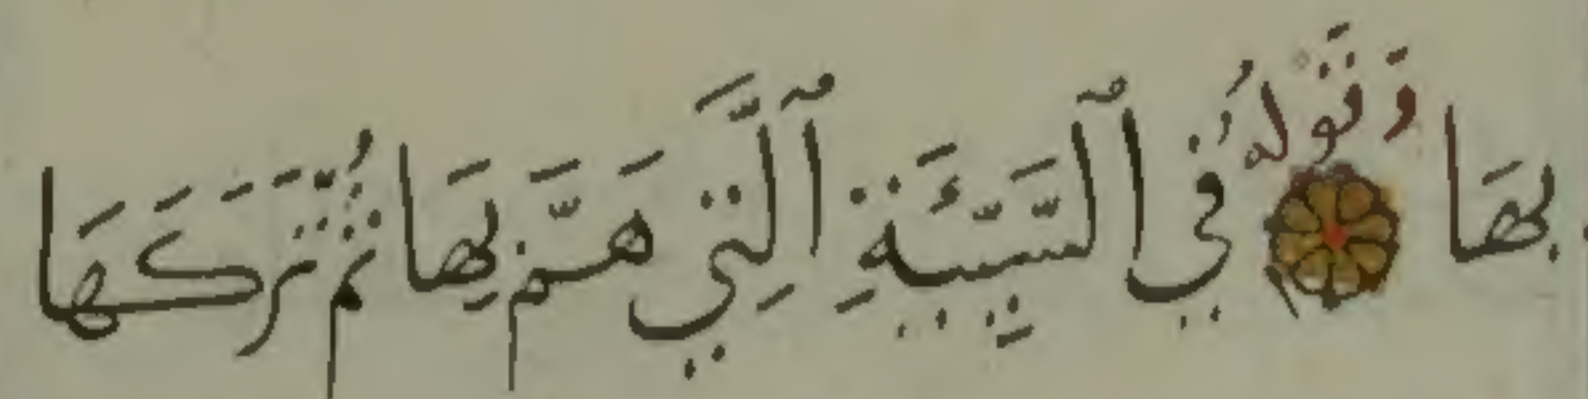 بها وَقَوْلُهُ فِي ٱلسَّيِّئَةِ ٱلَّتِي هَمَّ بِهَا ثُمَّ تَرَكَهَا